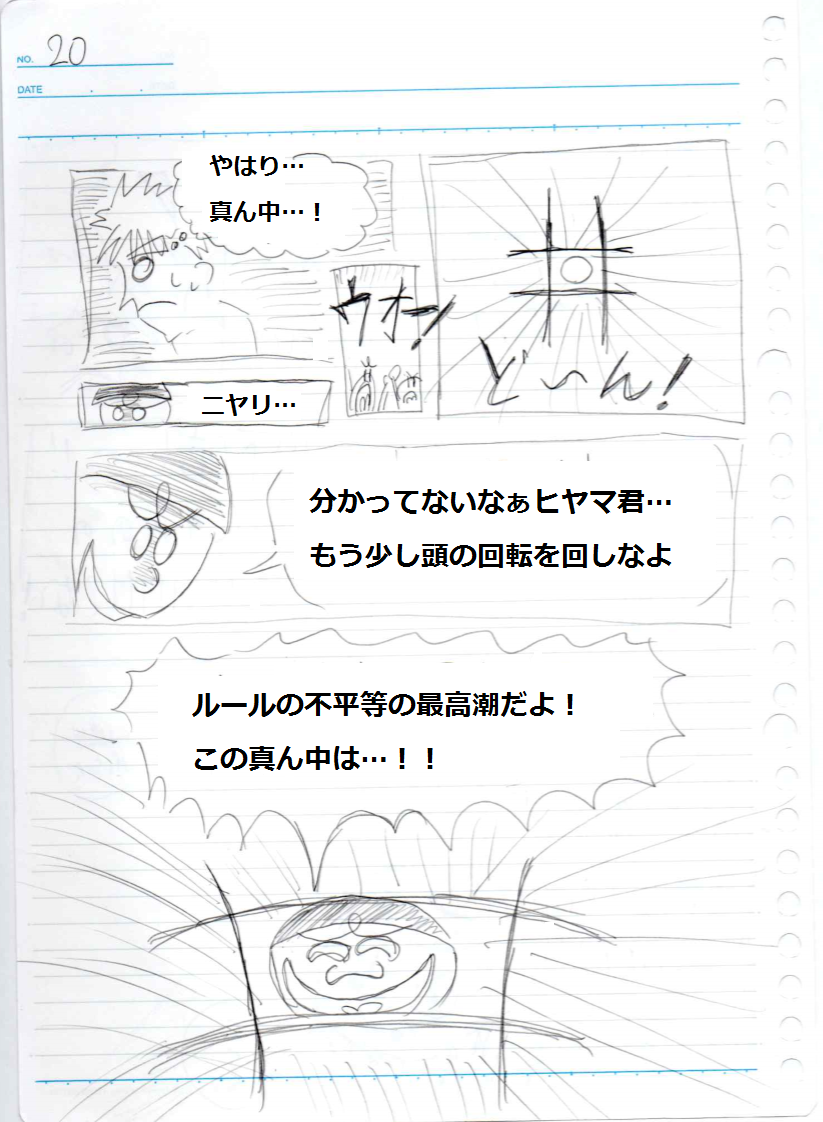 NO. 20
DATE
どーん!
やはり…
真ん中…！
ウオー!
ニヤリ…
分かってないなぁヒヤマ君…
もう少し頭の回転を回しなよ
ルールの不平等の最高潮だよ！
この真ん中は…！！